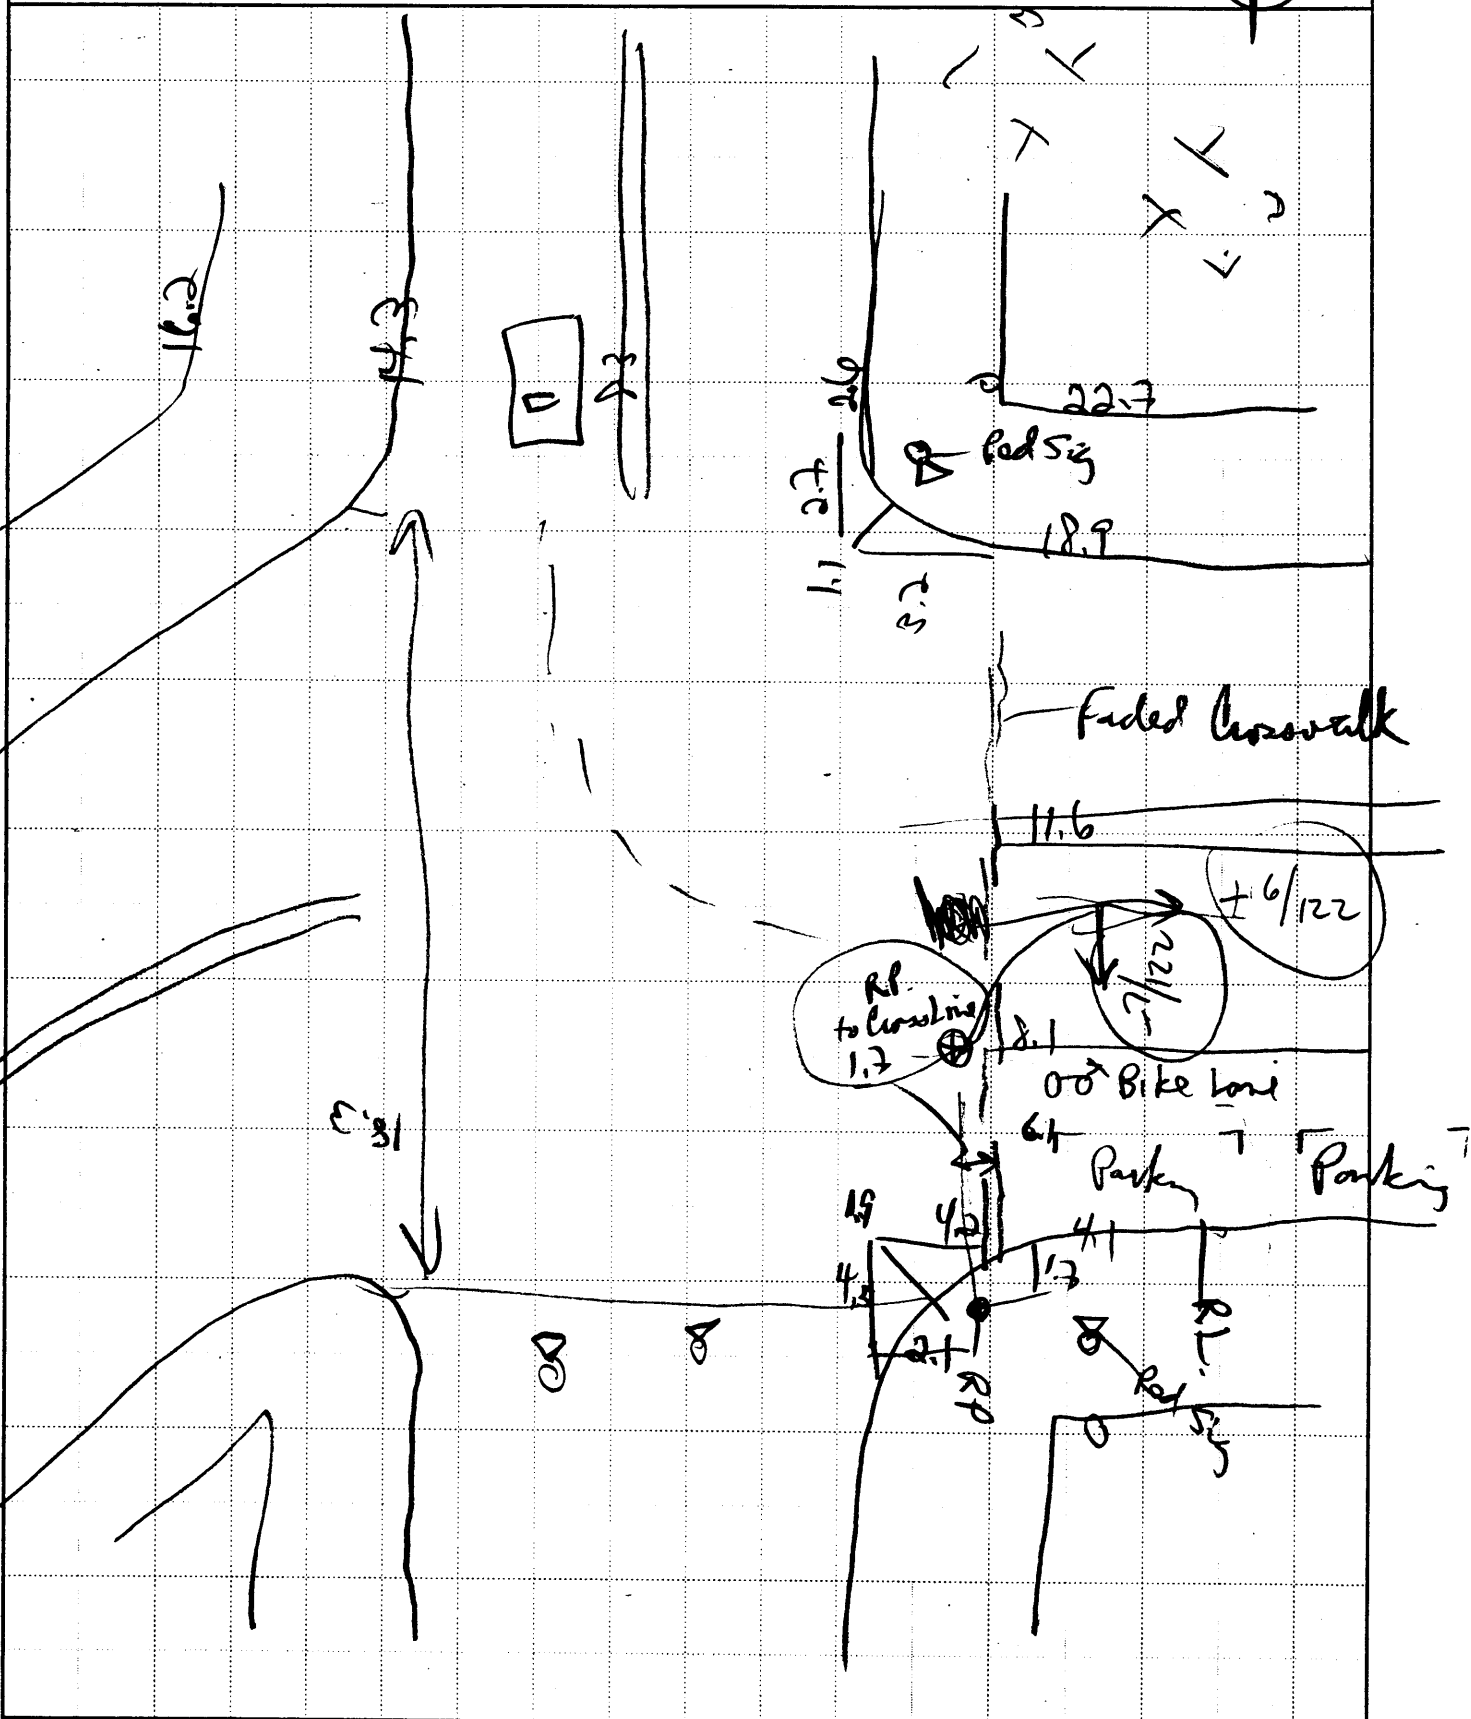 14.3
23
2.6
22.7
Ped Sig
2.7
18.9
1.1
3.2
Faded Crosswalk
11.6
± 6/122
-7/122
R.P.
to Cross Line
1.7
8.1
Bike Lane
18.3
6.1
Parking
Parking
1.9
4.2
4.1
4.3
1.7
2.1
RP
RL
Ped Sig